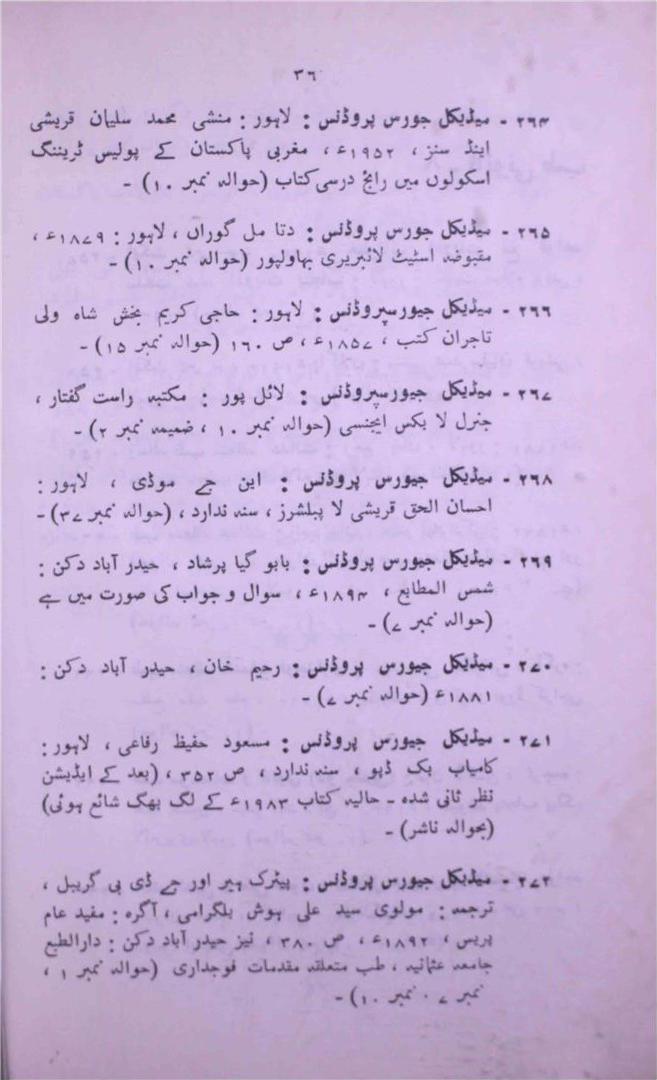 ۳۶
۲۶۴ - میڈیکل جورس پروڈنس : لاہور : منشی محمد سلیمان قریشی
اینڈ سنز ، ۱۹۵۲ء ، مغربی پاکستان کے پولیس ٹریننگ
اسکولوں میں رائج درسی کتاب (حوالہ نمبر ۱۰) -
۲۶۵ - میڈیکل جورس پروڈنس : دتا مل گوراں ، لاہور : ۱۸۷۹ء ،
مقبوضہ اسٹیٹ لائبریری بھاولپور (حوالہ نمبر ۱۰) -
۲۶۶ - میڈیکل جیورسپروڈنس : لاہور : حاجی کریم بخش شاہ ولی
تاجران کتب ، ۱۸۵۷ء ، ص ۱۶۰ (حوالہ نمبر ۱۵) -
۲۶۷ - میڈیکل جیورسپروڈنس : لائل پور : مکتبہ راست گفتار ،
جنرل لا بکس ایجنسی (حوالہ نمبر ۱۰ ، ضمیمہ نمبر ۲) -
۲۶۸ - میڈیکل جیورس پروڈنس : این جے موڈی ، لاہور :
احسان الحق قریشی لا پبلشرز ، سنہ ندارد ، (حوالہ نمبر ۳۷) -
۲۶۹ - میڈیکل جیورس پروڈنس : بابو گیا پرشاد ، حیدر آباد دکن :
شمس المطابع ، ۱۸۹۴ء ، سوال و جواب کی صورت میں ہے
(حوالہ نمبر ۷) -
۲۷۰ - میڈیکل جیورس پروڈنس : رحیم خان ، حیدر آباد دکن :
۱۸۸۱ء (حوالہ نمبر ۷) -
۲۷۱ - میڈیکل جیورس پروڈنس : مسعود حفیظ رفاعی ، لاہور :
کامیاب بک ڈپو ، سنہ ندارد ، ص ۳۵۲ ، (بعد کے ایڈیشن
نظر ثانی شدہ - حالیہ کتاب ۱۹۸۳ء کے لگ بھگ شائع ہوئی)
(بحوالہ ناشر) -
۲۷۲ - میڈیکل جیورس پروڈنس : پیٹرک ہیر اور جے ڈی بی گریبل ،
ترجمہ : مولوی سید علی ہوش بلگرامی ، آگرہ : مفید عام
پریس ، ۱۸۹۲ء ، ص ۳۸۰ ، نیز حیدر آباد دکن : دارالطبع
جامعہ عثمانیہ ، طب متعلقہ مقدمات فوجداری (حوالہ نمبر ۱ ،
نمبر ۷ ، نمبر ۱۰) -